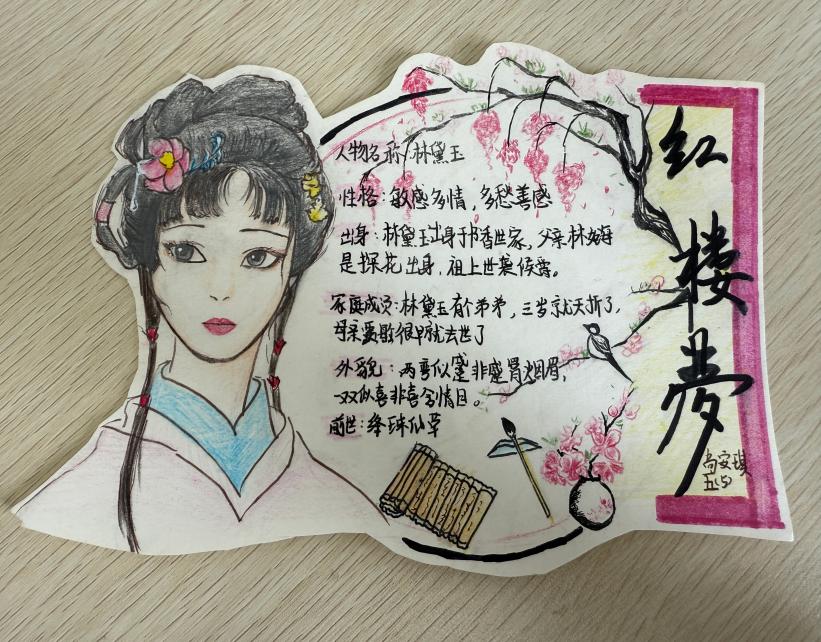 人物名称:林黛玉
性格:敏感多情,多愁善感
出身:林黛玉出身于书香世家,父亲林如海
是探花出身,祖上世袭侯爵。
家庭成员:林黛玉有个弟弟,三岁就夭折了,
母亲贾敏很早就去世了
外貌:两弯似蹙非蹙罥烟眉,
一双似喜非喜含情目。
前世:绛珠仙草
红楼梦
尚安琪
五(5)